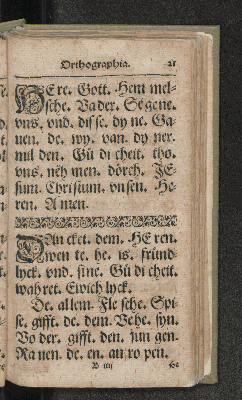 Orthographia. 21
HEre. Gott. Hem mel-
sche. Va der. Se gene.
vns. vnd. dis se. dy ne. Ga-
uen. de. wy. van. dy ner.
mil den. Gü di cheit. tho.
vns. neh men. dörch. JE-
sum. Christum. vnsen. He-
ren. A men.
DAn cket. dem. HE ren.
wen te. he. is. fründ-
lyck. vnd. sine. Gü di cheit.
wah ret. Ewich lyck.
De. allem. Fle sche. Spi-
se. gifft. de. dem. Vehe. syn.
Vo der. gifft. den. jun gen.
Ra uen. de. en. an ro pen.
B iiij